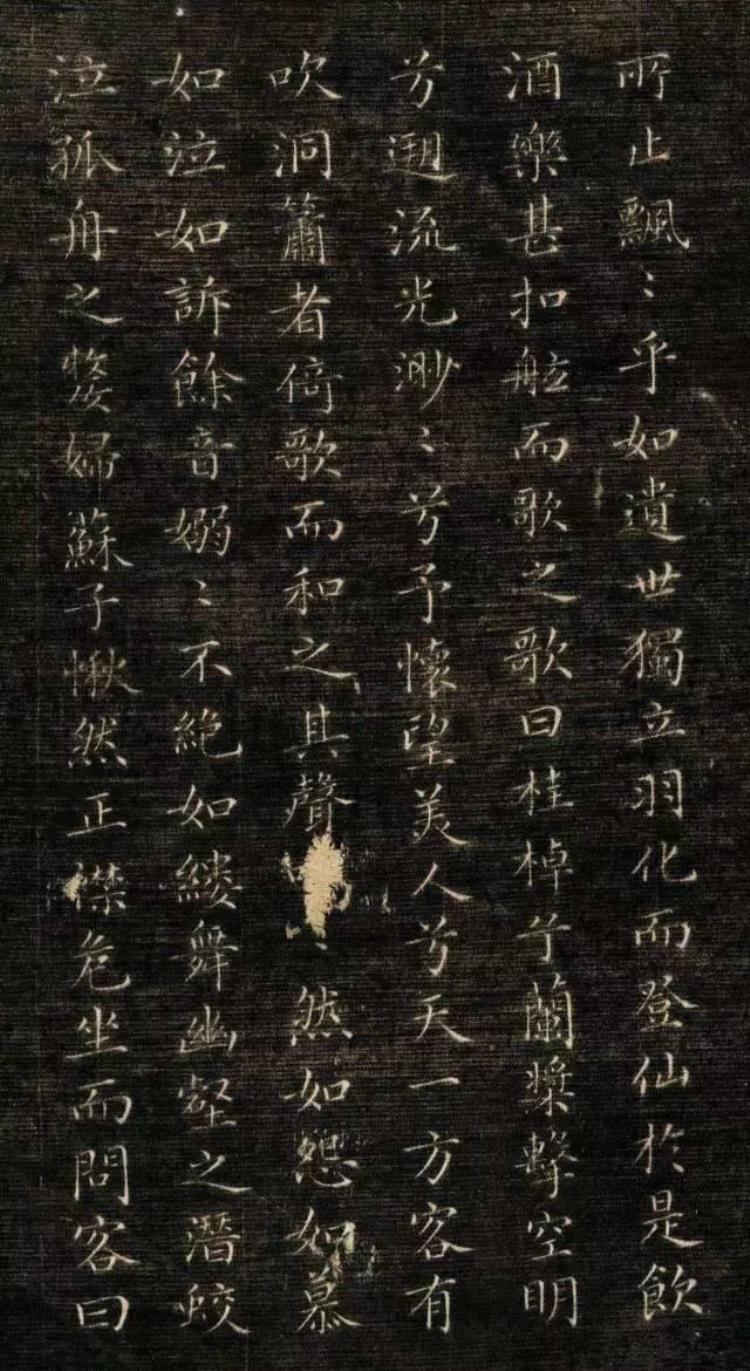 所止飄〻乎如遺世獨立羽化而登仙於是飲
酒樂甚扣舷而歌之歌曰桂棹兮蘭槳擊空明
兮遡流光渺〻兮予懷望美人兮天一方客有
吹洞簫者倚歌而和之其聲〻然如怨如慕
如泣如訴餘音嫋〻不絶如縷舞幽壑之潛蛟
泣孤舟之嫠婦蘇子愀然正襟危坐而問客曰